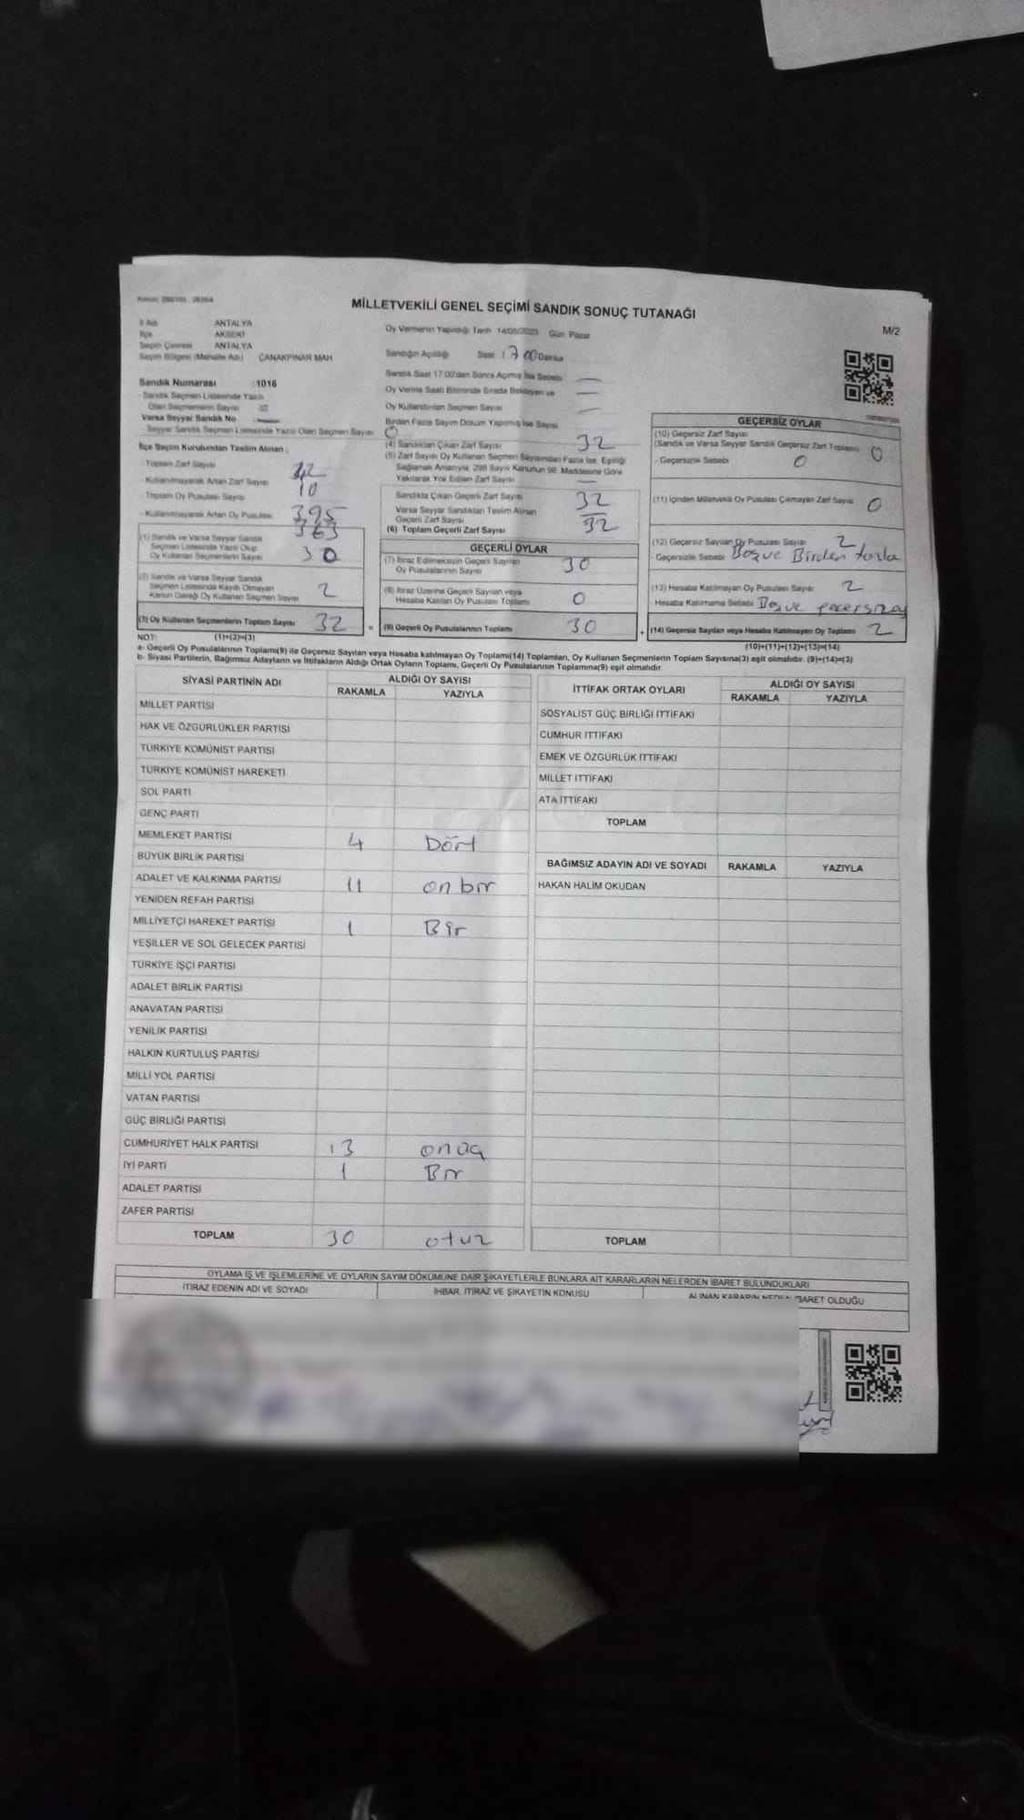 MİLLETVEKİLİ GENEL SEÇİMİ SANDIK SONUÇ TUTANAĞI
M/2
İl Adı ANTALYA
İlçe AKSEKİ
Seçim Çevresi ANTALYA
Seçim Bölgesi (Mahalle Adı) ÇANAKPINAR MAH
Sandık Numarası :1016
Sandık Seçmen Listesinde Yazılı
Olan Seçmenlerin Sayısı
Varsa Seyyar Sandık No
Seyyar Sandık Seçmen Listesinde Yazılı Olan Seçmen Sayısı
İlçe Seçim Kurulundan Teslim Alınan
Toplam Zarf Sayısı 42
Kullanılmayarak Artan Zarf Sayısı 10
Toplam Oy Pusulası Sayısı 395
Kullanılmayarak Artan Oy Pusulası 363
(1) Sandık ve Varsa Seyyar Sandık
Seçmen Listesinde Yazılı Olup
Oy Kullanan Seçmenlerin Sayısı 30
(2) Sandık ve Varsa Seyyar Sandık
Seçmen Listesinde Kayıtlı Olmayan
Kanun Gereği Oy Kullanan Seçmen Sayısı 2
(3) Oy Kullanan Seçmenlerin Toplam Sayısı 32
(1)+(2)=(3)
Oy Vermenin Yapıldığı Tarih 14/05/2023 Gün Pazar
Sandığın Açıldığı Saat 17 00 Dakika
Sandık Saat 17:00'den Sonra Açılmış İse Sebebi
Oy Verme Saati Bitiminde Sırada Bekleyen ve
Oy Kullandırılan Seçmen Sayısı
Birden Fazla Sayım Döküm Yapılmış İse Sayısı 0
(4) Sandıktan Çıkan Zarf Sayısı 32
(5) Zarf Sayısı Oy Kullanan Seçmen Sayısından Fazla İse, Eşitliği
Sağlamak Amacıyla, 298 Sayılı Kanunun 98. Maddesine Göre
Yakılarak Yok Edilen Zarf Sayısı
Sandıkta Çıkan Geçerli Zarf Sayısı 32
Varsa Seyyar Sandıktan Teslim Alınan
Geçerli Zarf Sayısı
(6) Toplam Geçerli Zarf Sayısı 32
GEÇERLİ OYLAR
(7) İtiraz Edilmeksizin Geçerli Sayılan
Oy Pusulalarının Sayısı 30
(8) İtiraz Üzerine Geçerli Sayılan veya
Hesaba Katılan Oy Pusulası Toplamı 0
(9) Geçerli Oy Pusulalarının Toplamı 30
GEÇERSİZ OYLAR
(10) Geçersiz Zarf Sayısı
(Sandık ve Varsa Seyyar Sandık Geçersiz Zarf Toplamı) 0
Geçersizlik Sebebi 0
(11) İçinden Milletvekili Oy Pusulası Çıkmayan Zarf Sayısı 0
(12) Geçersiz Sayılan Oy Pusulası Sayısı 2
Geçersizlik Sebebi Boş ve Birden fazla
(13) Hesaba Katılmayan Oy Pusulası Sayısı 2
Hesaba Katılmama Sebebi Boş ve geçersiz oy
(14) Geçersiz Sayılan veya Hesaba Katılmayan Oy Toplamı 2
(10)+(11)+(12)+(13)=(14)
NOT:
a- Geçerli Oy Pusulalarının Toplamı(9) ile Geçersiz Sayılan veya Hesaba katılmayan Oy Toplamı(14) Toplamları, Oy Kullanan Seçmenlerin Toplam Sayısına(3) eşit olmalıdır. (9)+(14)=(3)
b- Siyasi Partilerin, Bağımsız Adayların ve İttifakların Aldığı Ortak Oyların Toplamı, Geçerli Oy Pusulalarının Toplamına(9) eşit olmalıdır.
SİYASİ PARTİNİN ADI ALDIĞI OY SAYISI
RAKAMLA YAZIYLA
MİLLET PARTİSİ
HAK VE ÖZGÜRLÜKLER PARTİSİ
TÜRKİYE KOMÜNİST PARTİSİ
TÜRKİYE KOMÜNİST HAREKETİ
SOL PARTİ
GENÇ PARTİ
MEMLEKET PARTİSİ 4 Dört
BÜYÜK BİRLİK PARTİSİ
ADALET VE KALKINMA PARTİSİ 11 on bir
YENİDEN REFAH PARTİSİ
MİLLİYETÇİ HAREKET PARTİSİ 1 Bir
YEŞİLLER VE SOL GELECEK PARTİSİ
TÜRKİYE İŞÇİ PARTİSİ
ADALET BİRLİK PARTİSİ
ANAVATAN PARTİSİ
YENİLİK PARTİSİ
HALKIN KURTULUŞ PARTİSİ
MİLLİ YOL PARTİSİ
VATAN PARTİSİ
GÜÇ BİRLİĞİ PARTİSİ
CUMHURİYET HALK PARTİSİ 13 onüç
İYİ PARTİ 1 Bir
ADALET PARTİSİ
ZAFER PARTİSİ
TOPLAM 30 otuz
İTTİFAK ORTAK OYLARI ALDIĞI OY SAYISI
RAKAMLA YAZIYLA
SOSYALİST GÜÇ BİRLİĞİ İTTİFAKI
CUMHUR İTTİFAKI
EMEK VE ÖZGÜRLÜK İTTİFAKI
MİLLET İTTİFAKI
ATA İTTİFAKI
TOPLAM
BAĞIMSIZ ADAYIN ADI VE SOYADI RAKAMLA YAZIYLA
HAKAN HALİM OKUDAN
TOPLAM
OYLAMA İŞ VE İŞLEMLERİNE VE OYLARIN SAYIM DÖKÜMÜNE DAİR ŞİKAYETLERLE BUNLARA AİT KARARLARIN NELERDEN İBARET BULUNDUKLARI
İTİRAZ EDENİN ADI VE SOYADI İHBAR, İTİRAZ VE ŞİKAYETİN KONUSU ALINAN KARARIN NEDEN İBARET OLDUĞU